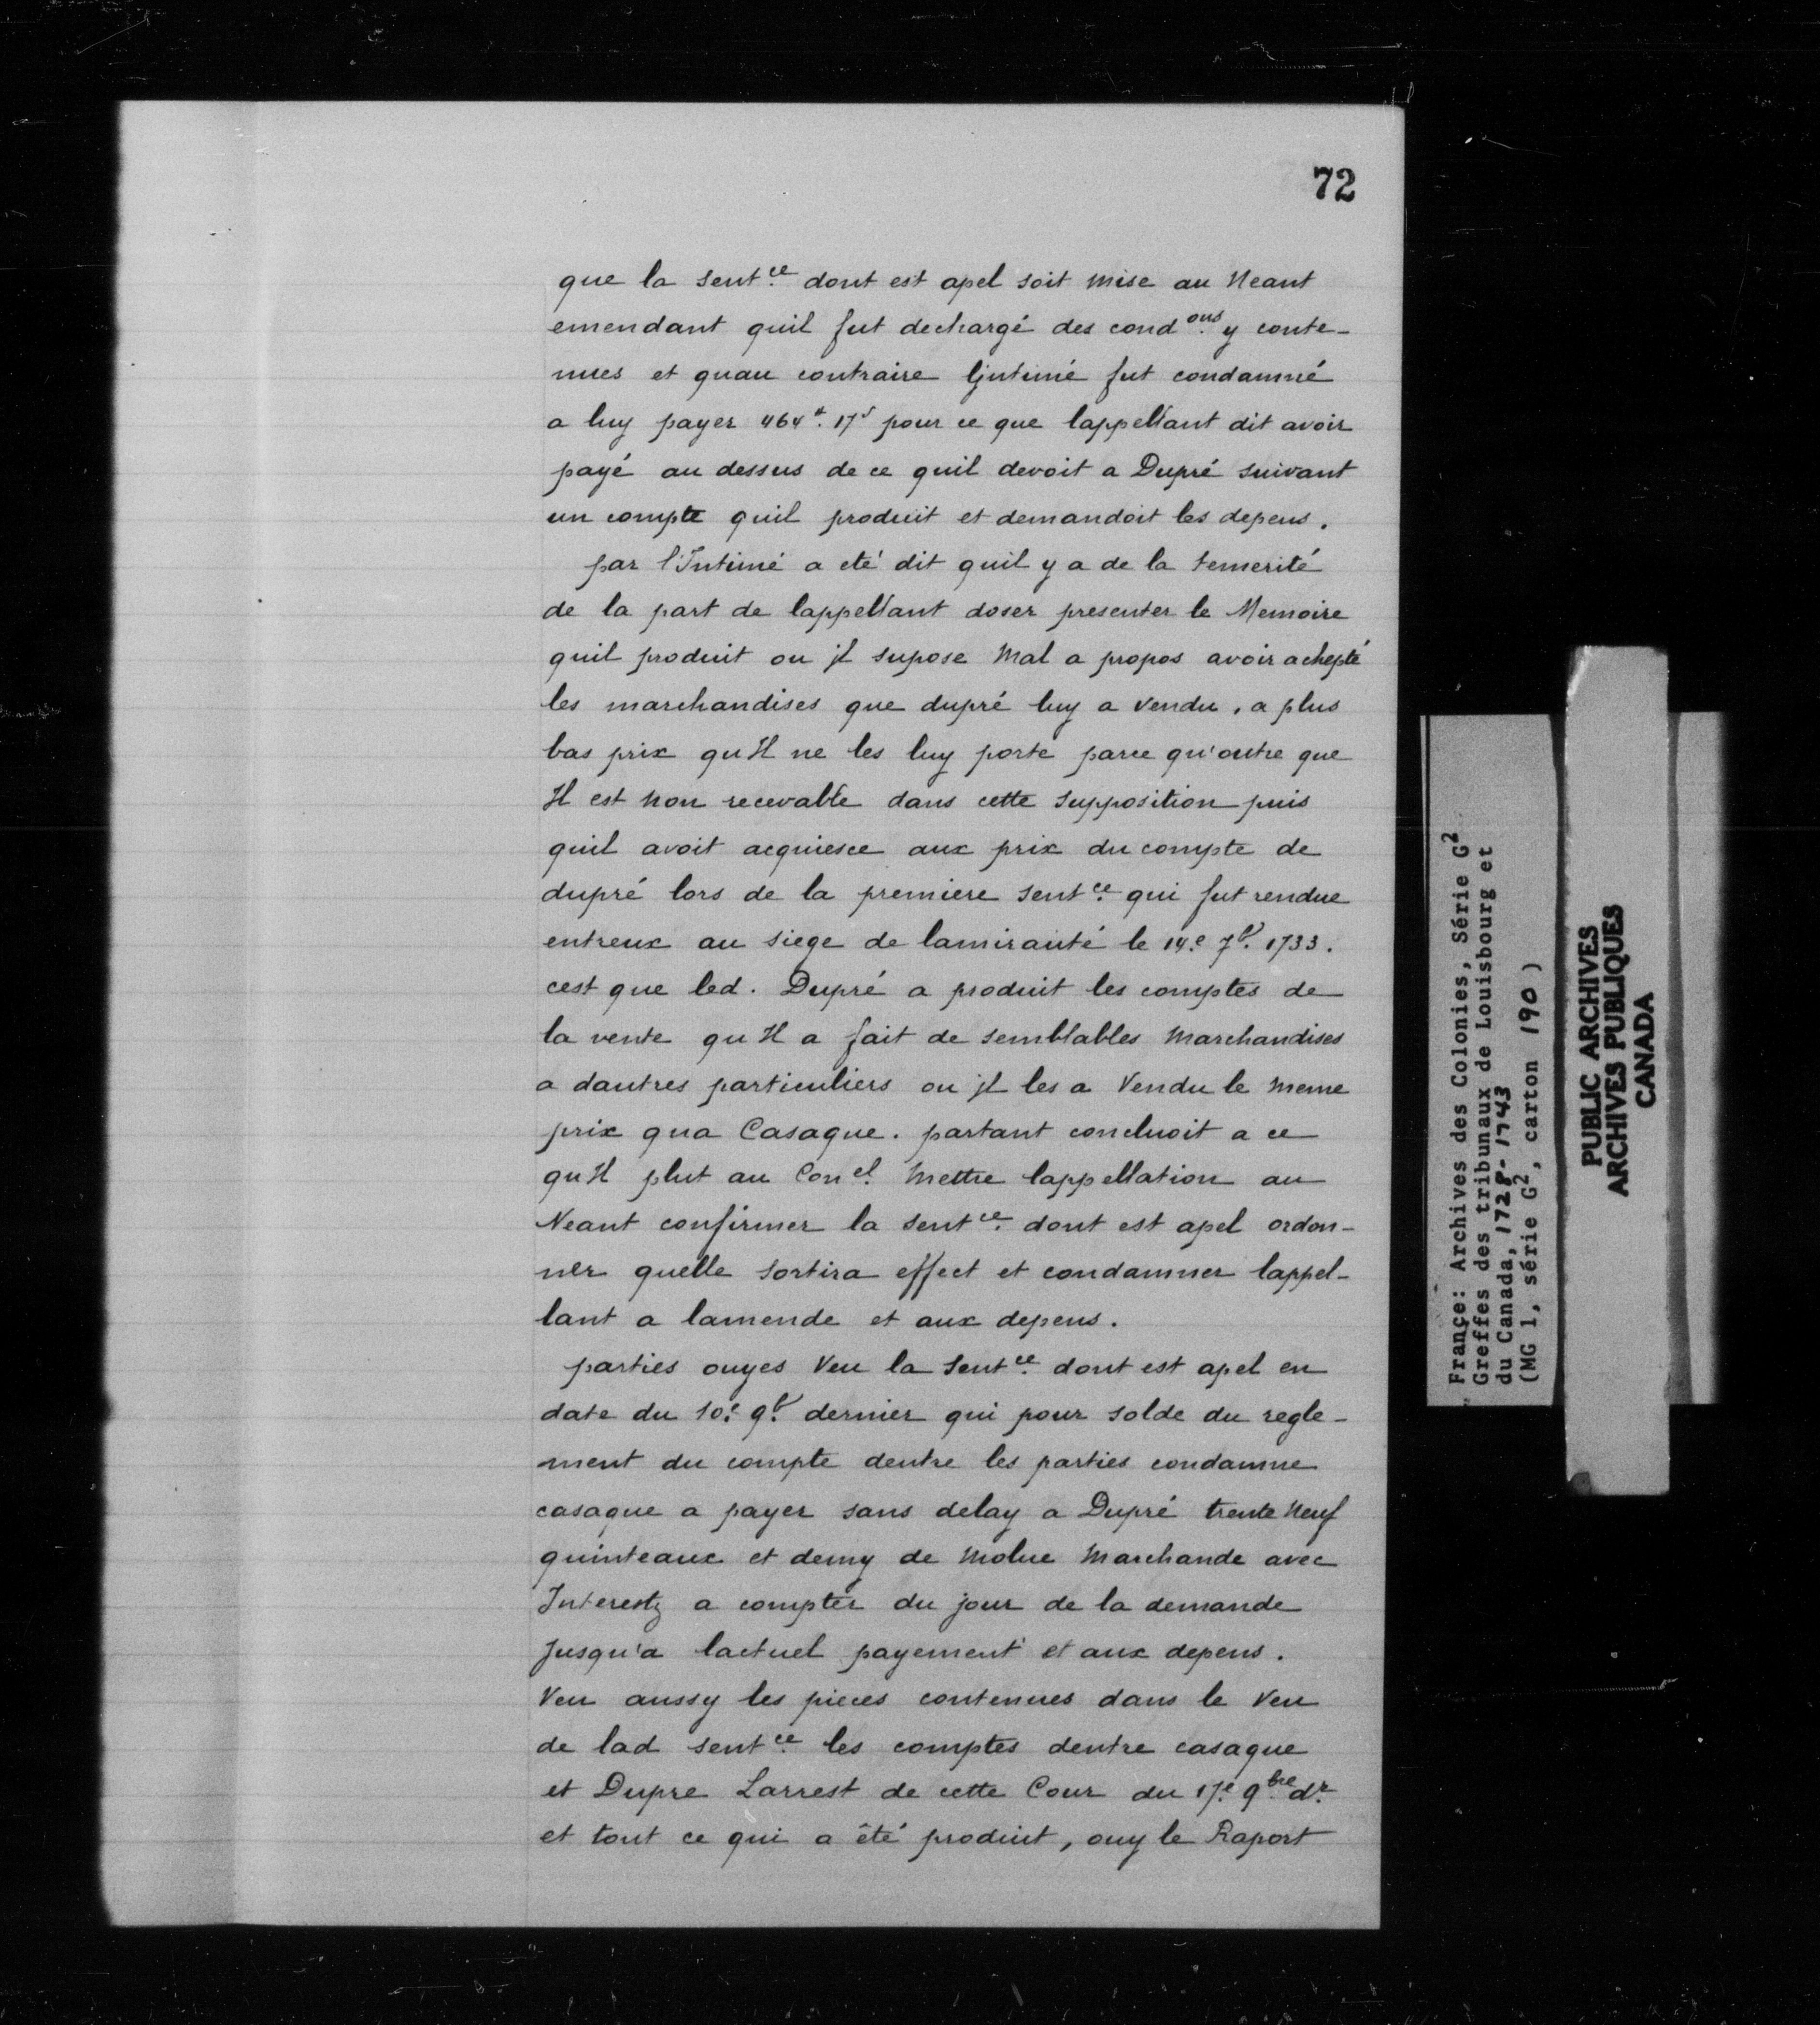 72
que la sent.ce dont est apel soit mise au Neant
emendant quil fut dechargé des cond.ons y conte-
nues et quau contraire ljntimé fut condamné
a luy payer 464# 17s pour ce que lappellant dit avoir
payé au dessus de ce quil devoit a Dupré suivant
un compte quil produit et demandoit les depens.
par l'Intimé a eté dit quil y a de la temerité
de la part de lappellant doser presenter le Memoire
quil produit ou jl supose Mal a propos avoir achepté
les marchandises que dupré luy a vendu, a plus
bas prix qu Il ne les luy porte parce qu'outre que
Il est Non recevable dans cette supposition puis
quil avoit acquiesce aux prix du compte de
dupré lors de la premiere sent.ce qui fut rendue
entreux au siege de lamirauté le 14.e 7b. 1733.
cest que led. Dupré a produit les comptes de
la vente qu Il a fait de semblables Marchandises
a dautres particuliers ou jl les a Vendu le meme
prix qua Casaque. partant concluoit a ce
qu Il plut au Con.el Mettre lappellation au
Neant confirmer la sent.ce dont est apel ordon-
ner quelle sortira effect et condamner lappel-
lant a lamende et aux depens.
parties ouyes Veu la Sent.ce dont est apel en
date du 10.e 9b. dernier qui pour solde du regle-
ment du compte dentre les parties condamne
casaque a payer sans delay a Dupré trente Neuf
quinteaux et demy de Molue Marchande avec
Interestz a compter du jour de la demande
Jusqu'a lactuel payement et aux depens.
Veu aussy les pieces contenues dans le Veu
de lad sent.ce les comptes dentre casaque
et Dupre Larrest de cette Cour du 17.e 9.bre d.r
et tout ce qui a êté produit, ouy le Raport
France: Archives des Colonies, Série G2
Greffes des tribunaux de Louisbourg et
du Canada, 1728-1743
(MG 1, série G2, carton 190)
PUBLIC ARCHIVES
ARCHIVES PUBLIQUES
CANADA